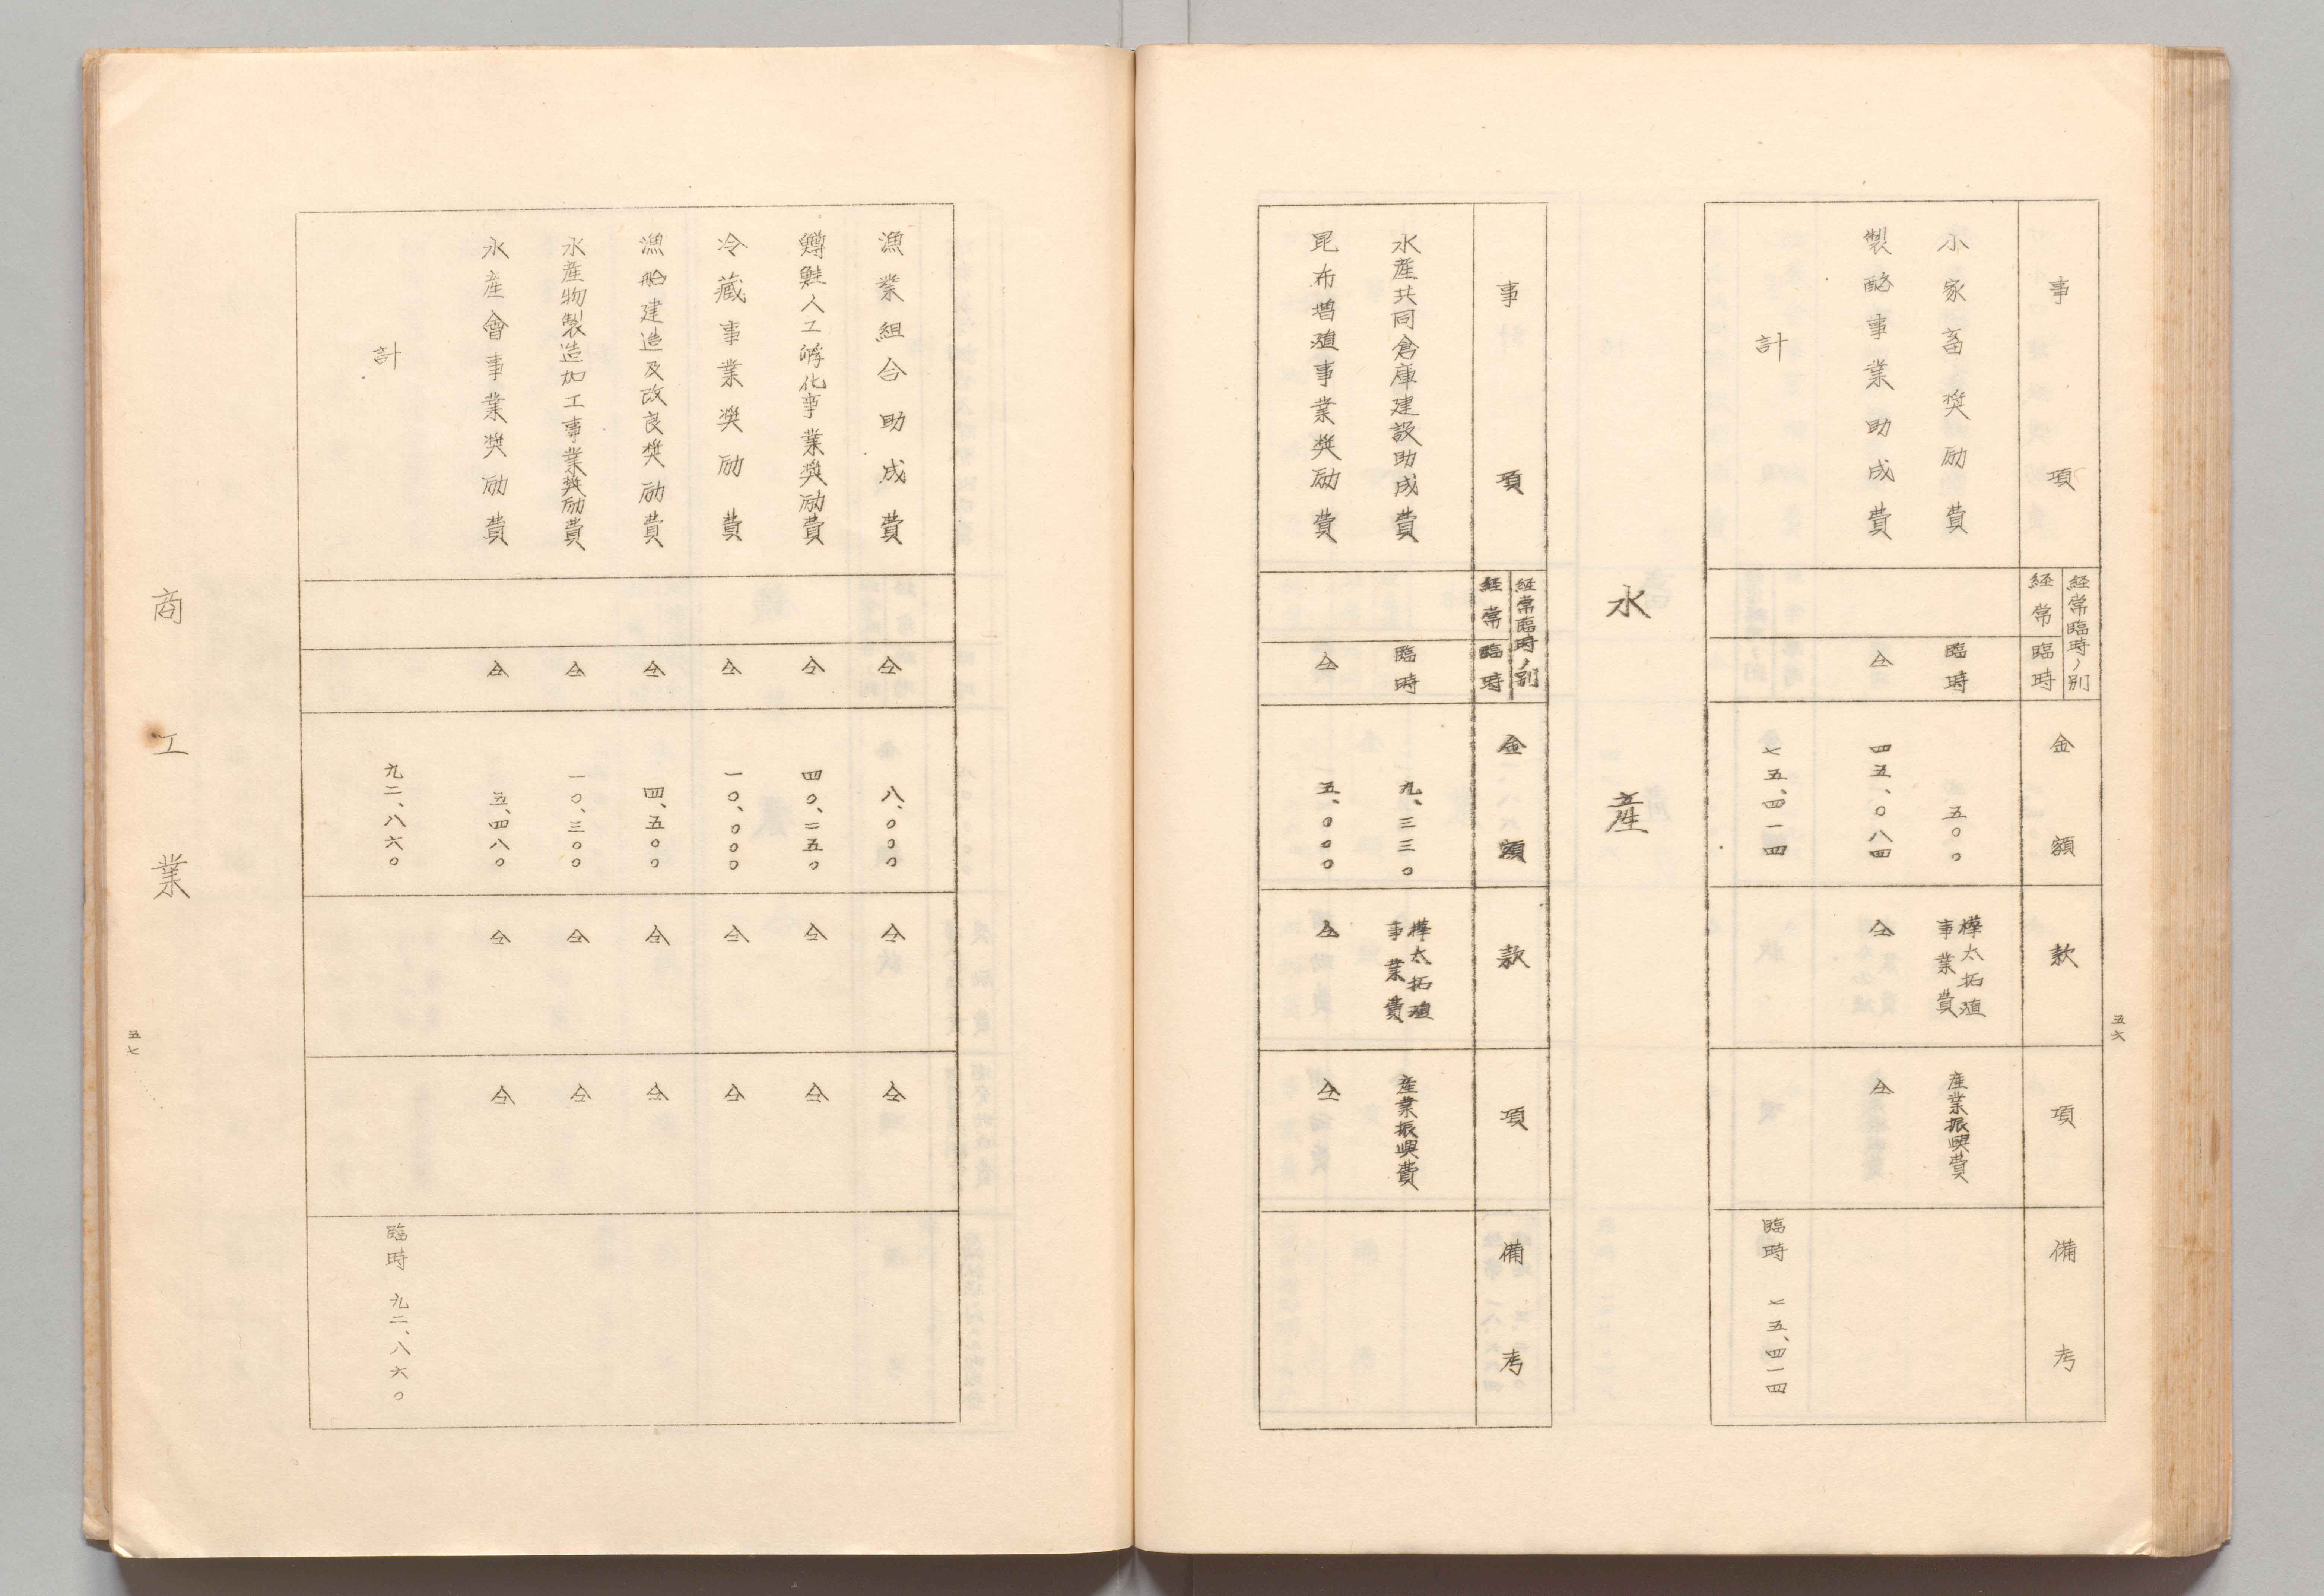 五六
事項 経常臨時ノ別 経常 臨時 金額 款 項 備考
小家畜奨励費 臨時 五〇〇 樺太拓殖事業費 産業振興費
製酪事業助成費 仝 四五、〇八四 仝 仝
計 七五、四一四 臨時 七五、四一四
水産
事項 経常臨時ノ別 経常 臨時 金額 款 項 備考
水産共同倉庫建設助成費 臨時 九、三三〇 樺太拓殖事業費 産業振興費
昆布増殖事業奨励費 仝 五、〇〇〇 仝 仝
漁業組合助成費 仝 八、〇〇〇 仝 仝
鱒鮭人工孵化事業奨励費 仝 四〇、二五〇 仝 仝
冷蔵事業奨励費 仝 一〇、〇〇〇 仝 仝
漁船建造及改良奨励費 仝 四、五〇〇 仝 仝
水産物製造加工事業奨励費 仝 一〇、三〇〇 仝 仝
水産會事業奨励費 仝 五、四八〇 仝 仝
計 九二、八六〇 臨時 九二、八六〇
商工業
五七